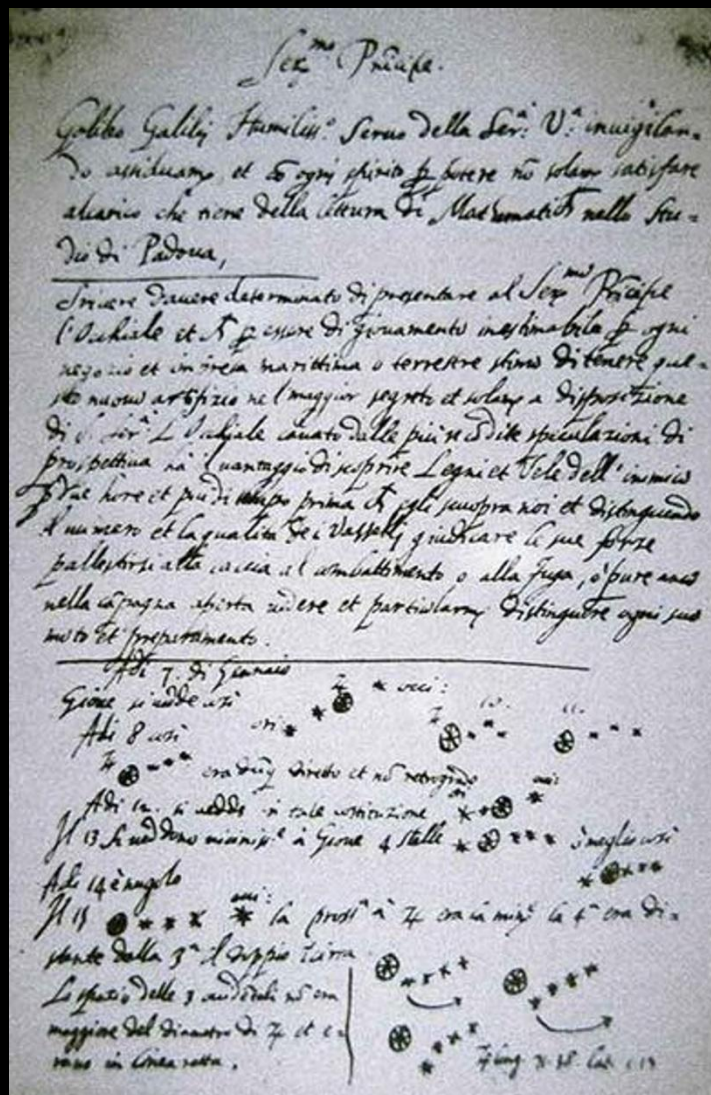 Ser.mo Principe.
Galileo Galilej Humiliss.o Servo della Ser.a V.a invigilan=
do assiduam.te, et cō ogni spirito p potere nō solam.te satisfare
alcarico che tiene della lettura di Mathematich nello Stu=
dio di Padova,
Scrivere davere determinato di presentare al Ser.mo Principe
l'Occhiale et p essere di giovamento inestimabile p ogni
negozio et impresa marittima o terrestre stimo di tenere que=
sto nuovo artifizio nel maggior segreto et solam.te a disposizione
di S. Ser.a L'Occhiale cavato dalle più recōdite speculazioni di
prospettiva ha il vantaggio di scoprire Legni et Vele dell'inimico
p due hore et più di tempo prima ch egli scuopra noi et distinguendo
il numero et la qualità de i Vasselli giudicare le sue forze
pallestirsi alla caccia al combattimento o alla fuga, o pure anco
nella cāpagna aperta vedere et particolarm.te distinguere ogni suo
moto et preparamento.
Adi 7. di Gennaio
Gioue si vede cosi
occi:
Adi 8 cosi
ori
10.
11.
era dūq diretto et nō retrogrado
Adi 12. si vedde in tale costituzione
ori
occi
Il 13 si veddono vicinis.e à Gioue 4 stelle
ò meglio cosi
Adi 14 è nugolo
Il 15
occi:
la pross.a à ♃ era la min.e la 4.a era di=
stante dalla 3.a il doppio circa
Lo spazio delle 3 occidētali nō era
maggiore del diametro di ♃ et e=
rano in linea retta.
♃ long.